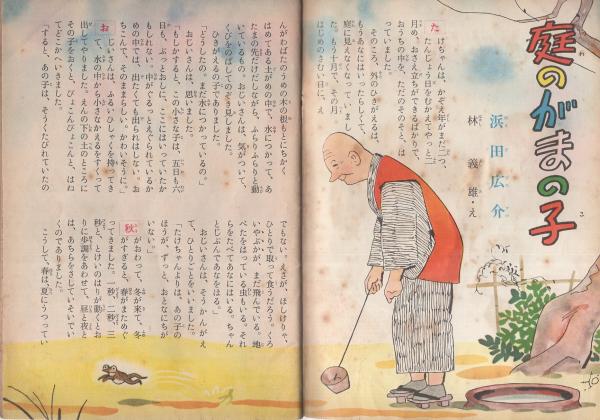 庭のがまの子
浜田広介
林義雄・え
たけぢゃんは、かぞえ年がまだ二つ、
たんじょう日をむかえてやっと二
月め、おさえ立ちができるばかりで、
おうちの中を、ただのそのそと、は
っていました。
そのころ、外のひきがえるは、
もうあなにはいったらしくて、
庭に見えなくなっていまし
た。もう十月で、その月
はじめのさむい日に、え
んがわばたのうめの木の根もとにちかく
はめてある土がめの中で、水につかって、あ
たまの先だけだしながら、ふらりふらりと動
いているもの。おじいさんは、気がついて、
くびをのばしてのぞき見しました。
ひきがえるの子でありました。
「どうしたの。まだ水につかっているの。」
おじいさんは、思いました。
「もしかすると、この小さな子は、五日も六
日も、ぶっとおしに、ここにはいっていたか
もしれない。中がぐるっとえぐられているか
めの中では、出たくても出られはしない。お
ちこんで、そのままらしい。かわいそうに。」
おじいさんは、ふるいひしゃくを持ってき
て、水の中から小さなかえるをすくって
出してやりました。えんの下のかれ土のところに
その子をおりると、ぴょこんぴょこんと、はね
てどこかへいきました。
「すると、あの子は、そうくたびれていたの
でもない。えさが、ほしけりゃ、
ひとりで取って食うだろう。くろ
いやぶかが、まだ飛んでいる。地
べたをはっている虫もいる。それ
らをたべてあなにはいる。ちゃん
とじぶんであなをほる。」
おじいさんは、そうかんがえ
て、ひとりごとをいいました。
「たけちゃんよりは、あの子の
ほうが、ずっと、おとなにちが
いない。」
秋がおわって、冬が来て、冬
がすぎると、春がまためぐ
ってきました。一秒、二秒、三
秒と、とけいのはりが動くとお
りに歩調をあわせて、昼と夜と
は、あちらをさしていそいでい
くのでありました。
こうして、春は、夏にうつってい